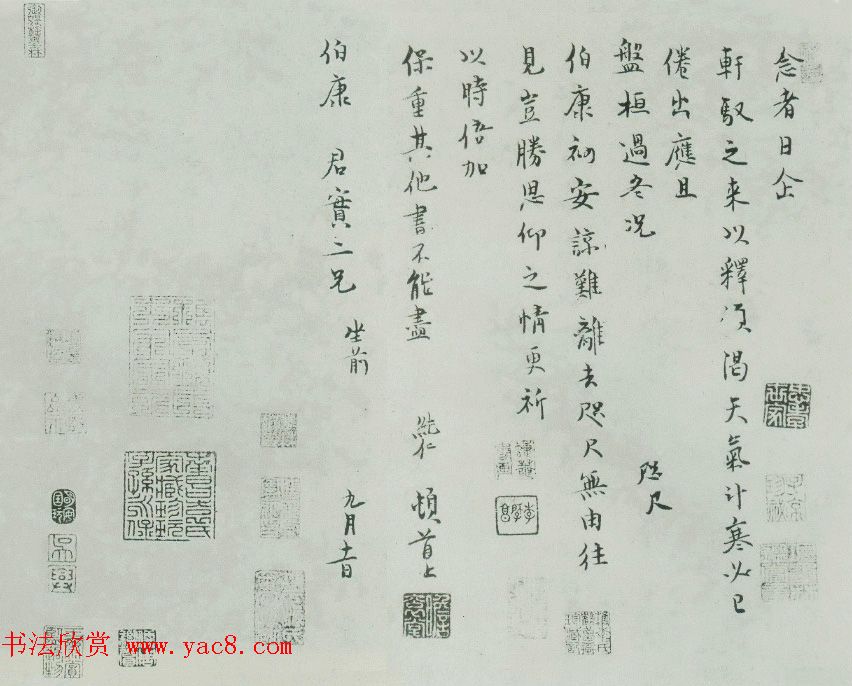 念者日企
軒馭之来以釋湏渴天氣計寒必已
倦出應且
盤桓過冬況
咫尺
伯康初安諒難離去咫尺無由往
見豈勝思仰之情更祈
以時倍加
保重其他書不能盡 純仁 頓首上
伯康 君實二兄 坐前 九月十一日
书法欣赏 www.yac8.com